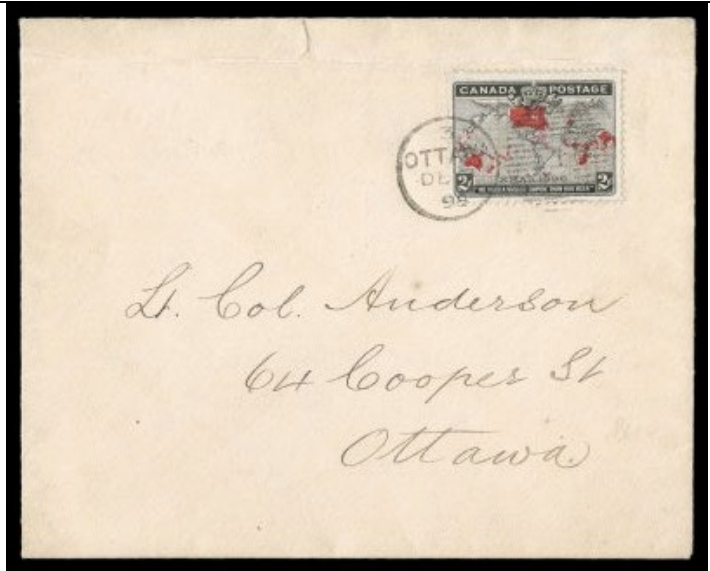 CANADA POSTAGE
XMAS 1898
2 "WE HOLD A VASTER EMPIRE THAN HAS BEEN" 2
OTTA
DE
98
Lt. Col. Anderson
64 Cooper St
Ottawa